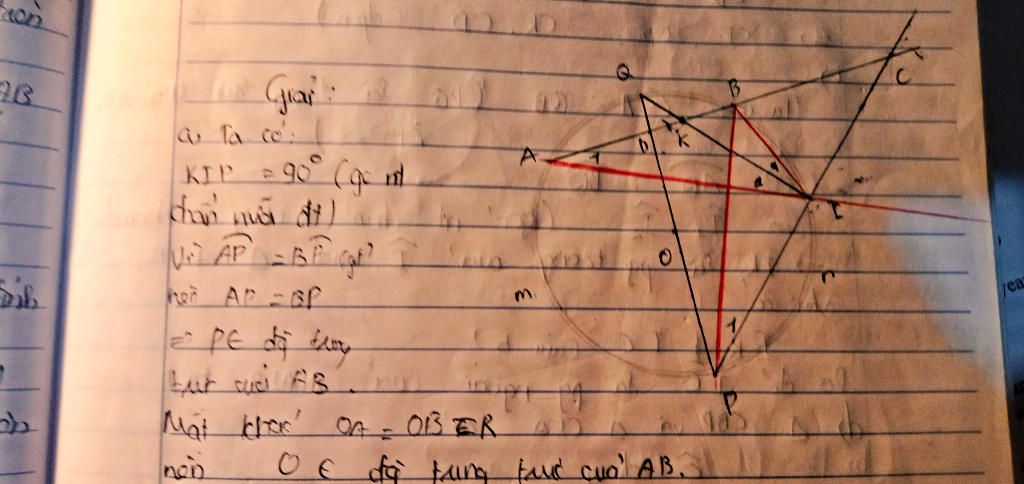 AB
Giải:
a, Ta có:
KIP = 90° (góc nt
chắn nửa đt)
Vì AP = BP (gt)
nên AP = BP
=> P ∈ đg trung
trực của AB.
Mặt khác OA = OB = R
nên O ∈ đg trung trực của AB.
Q
B
C
A
1
D
K
2
2
I
O
m
n
1
P